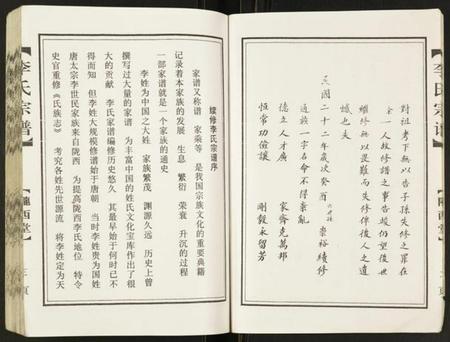 對祖考下無以告子孫失修之罪在
余一人故修譜之事告竣仍望後世
繼修無以是難而失修俾後人之遺
憾也夫
民國二十二年歲次癸酉 崇裕續修
通族一字名命不得紊亂
德立人才廣 家齊克萬邦
恆常功儉讓 剛毅永留芳
李氏宗譜
隴西堂
續修李氏宗譜序
家谱又称谱 家乘等 是我国宗族文化的重要典籍
记录着本家族的发展 生息 繁衍 荣衰 升沉的过程
一部家谱就是一个家族的通史
李姓为中国之大姓 家族繁茂 渊源久远 历史上曾
撰写过大量的家谱 为丰富中国的姓氏文化宝库作出了很
大的贡献 李氏家谱编修历史悠久 其最早始于何时已不
得而知 但李姓大规模修谱始于唐朝 当时李姓贵为国姓
唐太宗李世民家族来自陇西 为提高陇西李氏地位 特令
史官重修《氏族志》 考究各姓先世源流 将李姓定为天
李氏宗譜
隴西堂